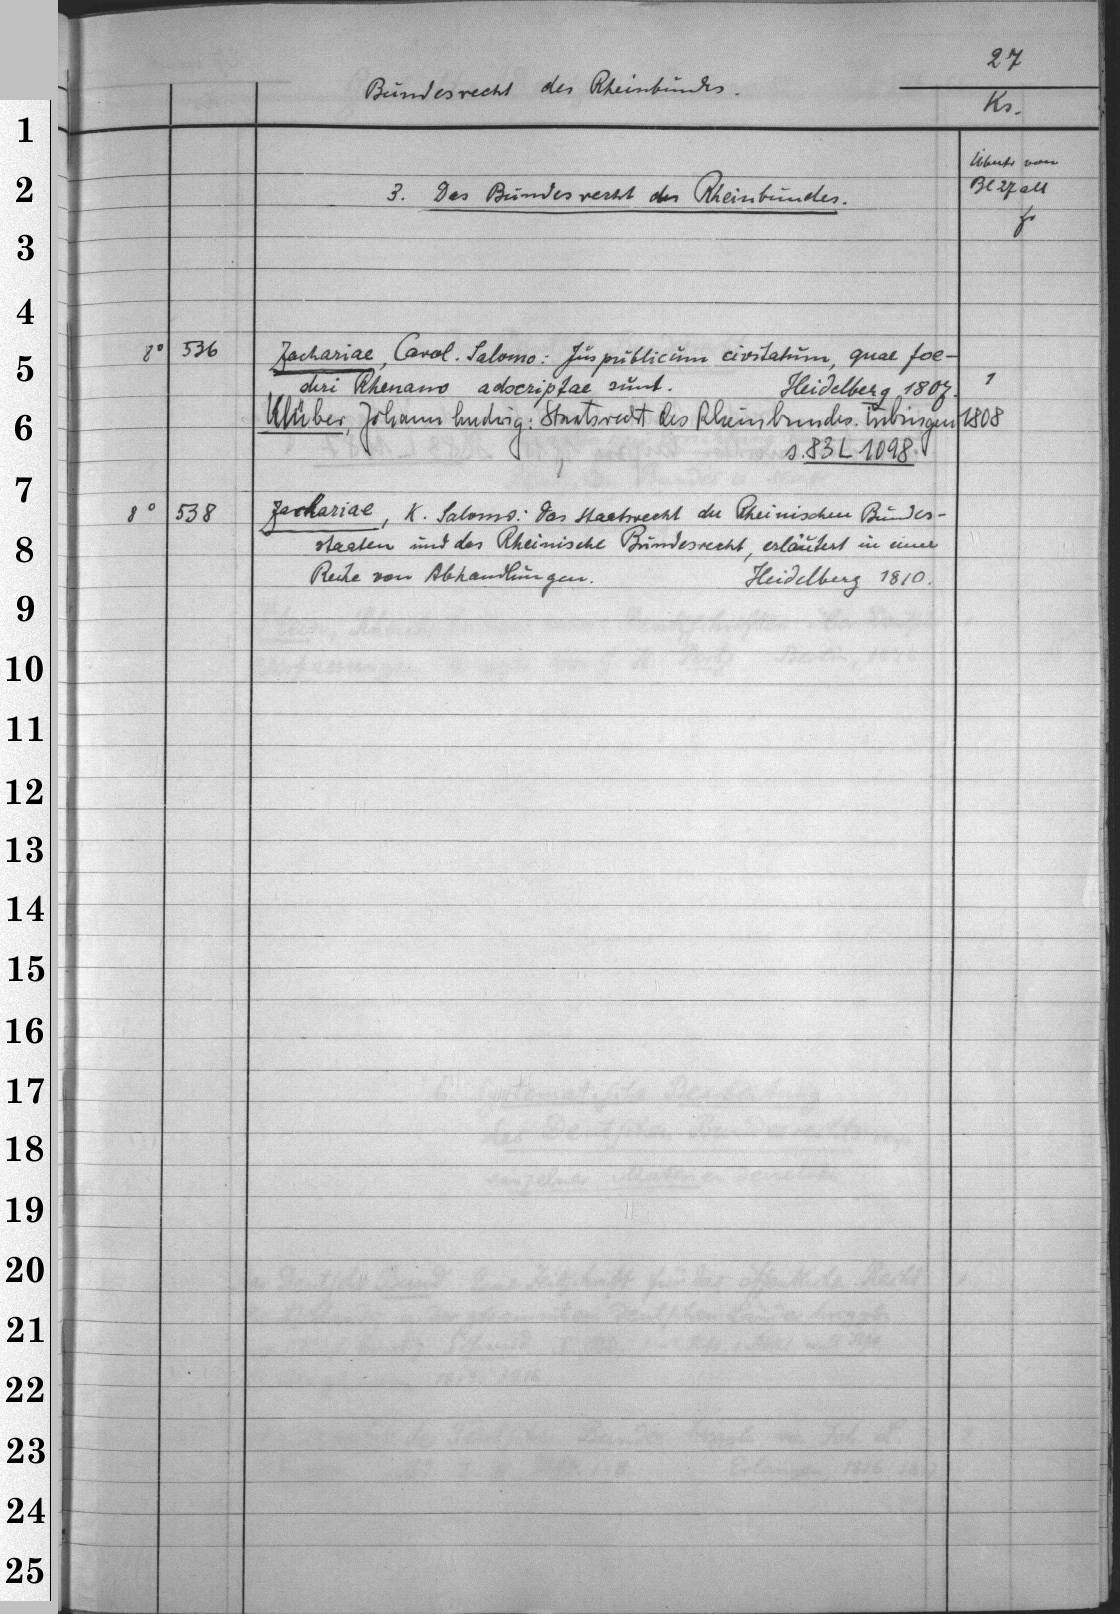 27
Bundesrecht des Rheinbundes.
Ks.
3. Das Bundesrecht des Rheinbundes.
Bl 27 alt
8° 536 Zachariae, Carol. Salomo: Jus publicum civitatum, quae foe-
deri Rhenano adscriptae sunt. Heidelberg 1807. 1
Klüber, Johann Ludwig: Staatsrecht des Rheinbundes. Tübingen 1808
s. 83 L 1098.
8° 538 Zachariae, K. Salomo: Das Staatsrecht der Rheinischen Bundes-
staaten und das Rheinische Bundesrecht, erläutert in einer
Reihe von Abhandlungen. Heidelberg 1810.
1
2
3
4
5
6
7
8
9
10
11
12
13
14
15
16
17
18
19
20
21
22
23
24
25